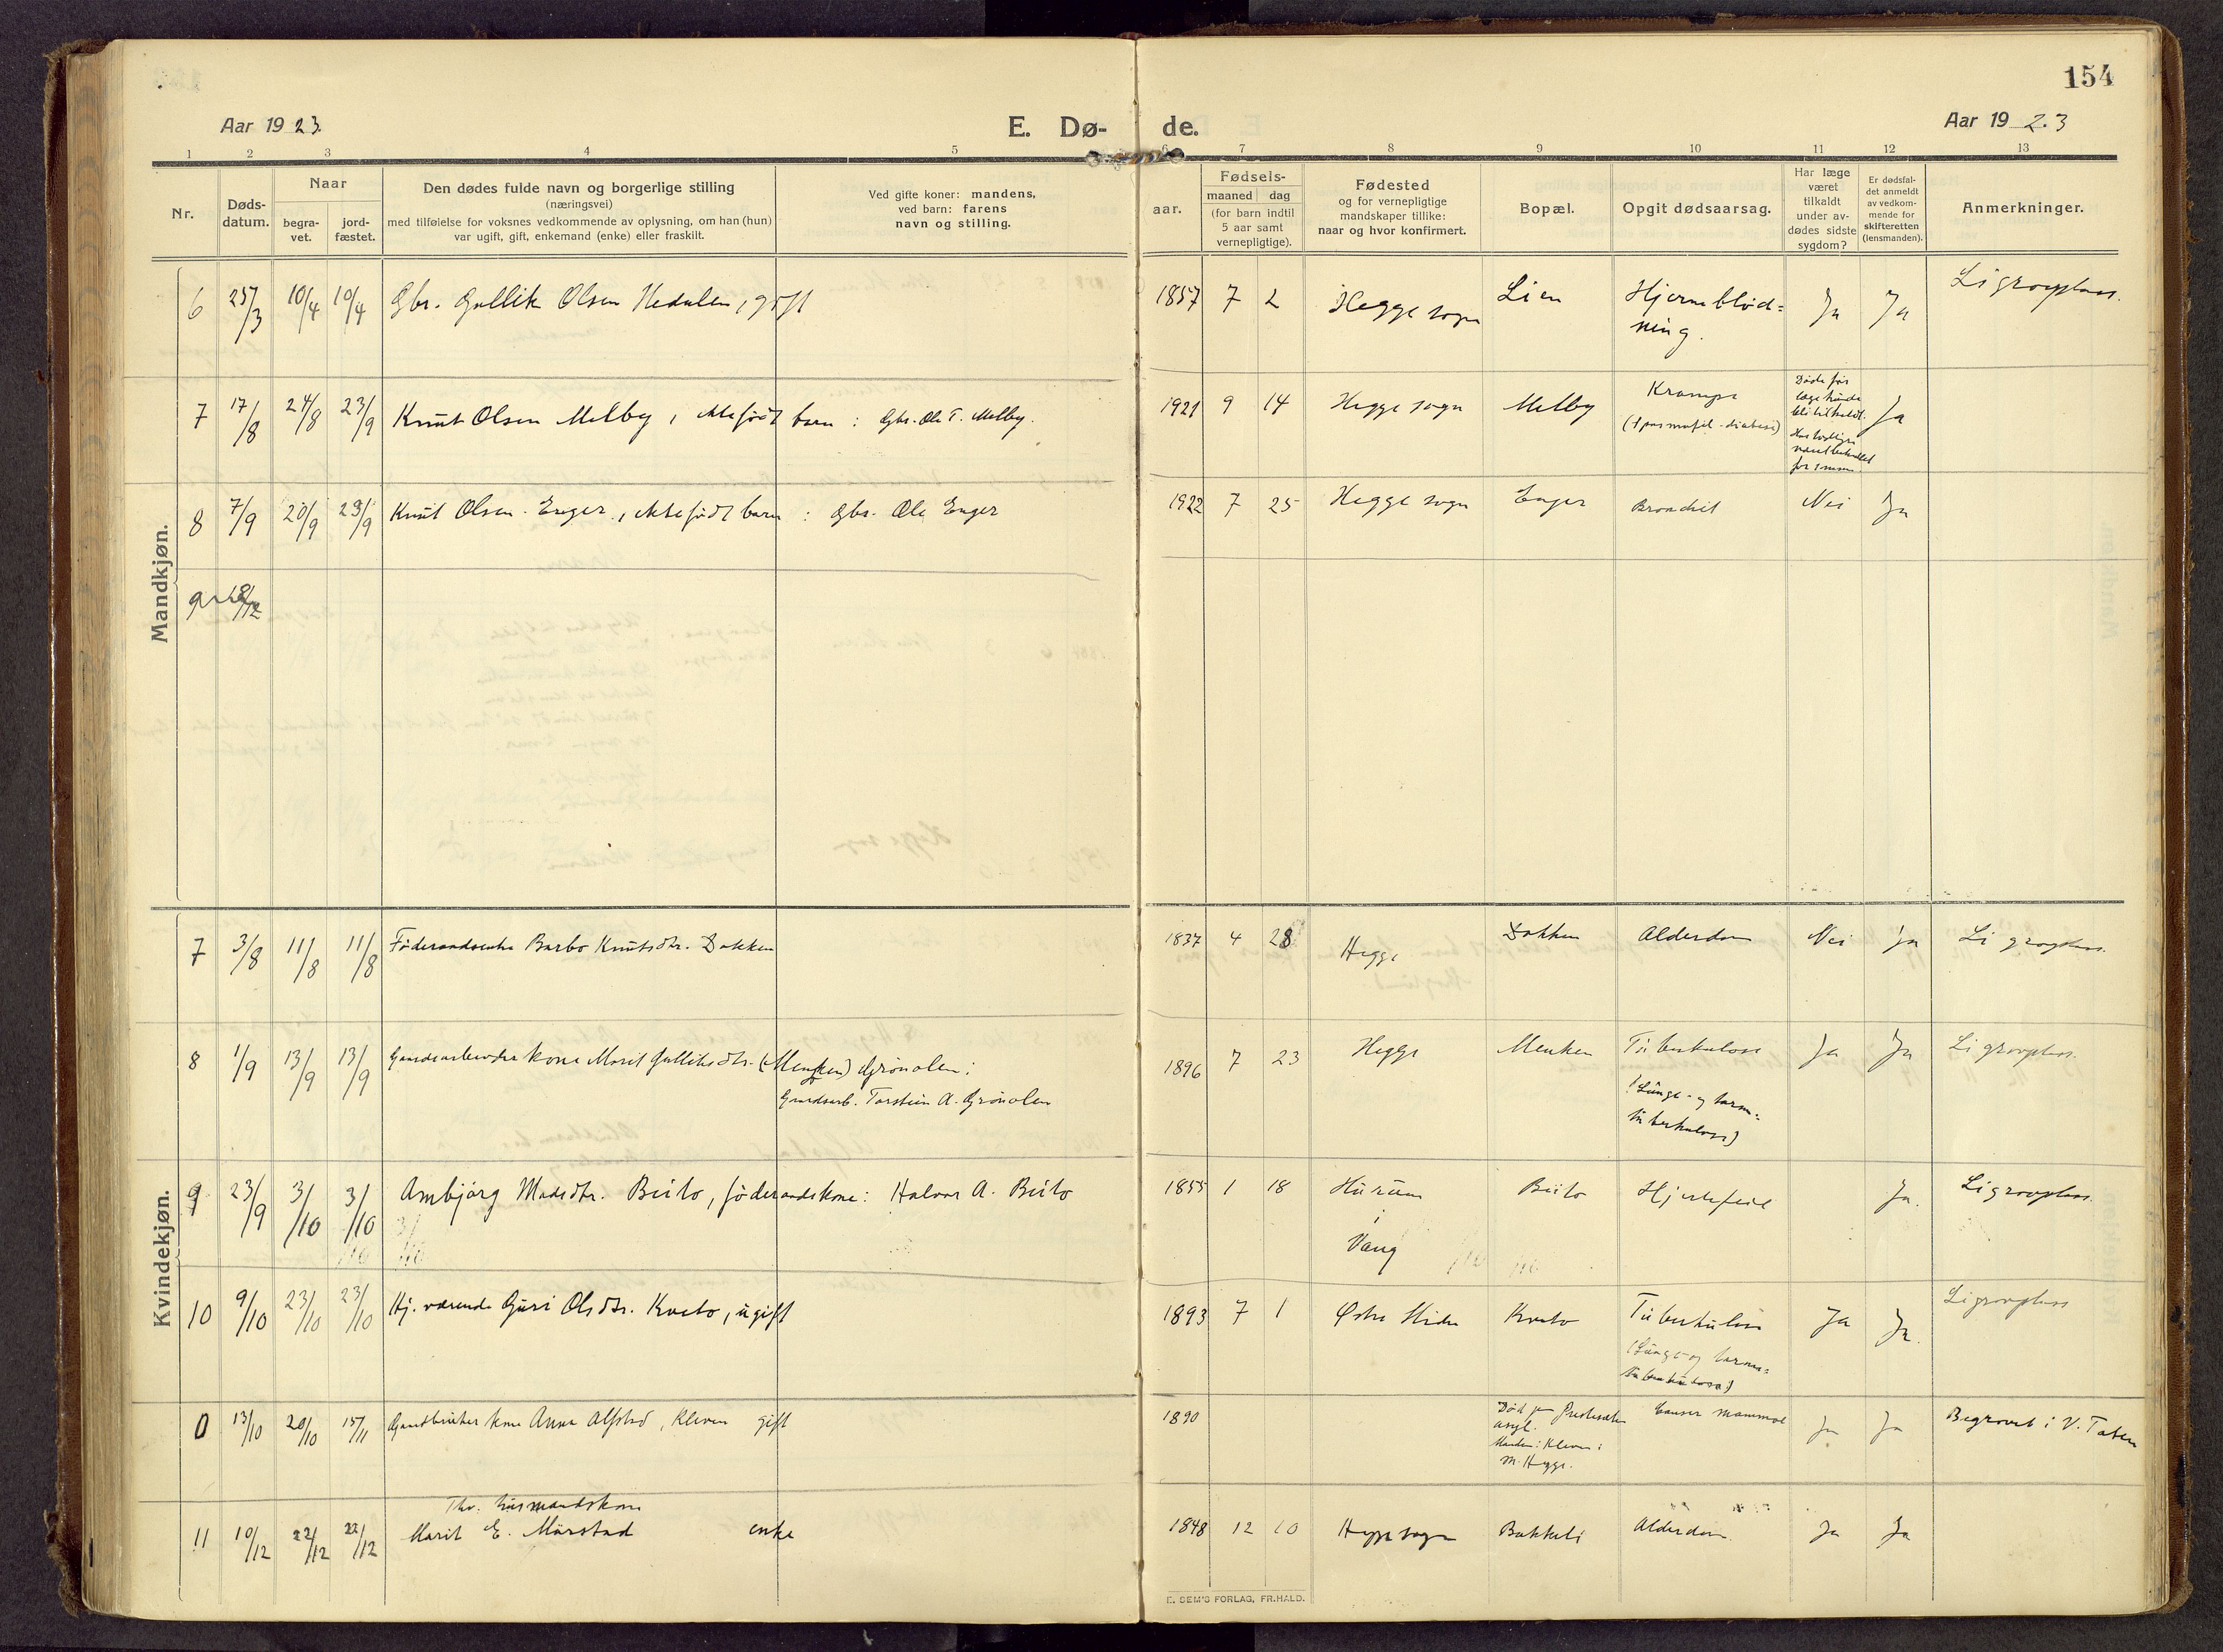 154
Aar 1923.
E. Dø-
de.
Aar 192.3
1 2 3 4 5 6 7 8 9 10 11 12 13
Nr.
Døds-
datum.
Naar
begra-
vet.
jord-
fæstet.
Den dødes fulde navn og borgerlige stilling
(næringsvei)
med tilføielse for voksnes vedkommende av oplysning, om han (hun)
var ugift, gift, enkemand (enke) eller fraskilt.
Ved gifte koner: mandens,
ved barn: farens
navn og stilling.
aar.
Fødsels-
maaned dag
(for barn indtil
5 aar samt
vernepligtige).
Fødested
og for vernepligtige
mandskaper tillike:
naar og hvor konfirmert.
Bopæl.
Opgit dødsaarsag.
Har læge
været
tilkaldt
under av-
dødes sidste
sygdom?
Er dødsfal-
det anmeldt
av vedkom-
mende for
skifteretten
(lensmanden).
Anmerkninger.
Mandkjøn.
6 25/3 10/4 10/4 Gbr. Gullik Olsen Hedalen, gift 1857 7 2 Hegge sogn Lien Hjerneblød=
ning. Ja Ja Li gravplass.
7 17/8 24/8 23/9 Knut Olsen Melby, ektefødt barn : Gbr. Ole T. Melby. 1921 9 14 Hegge sogn Melby Krampe
Ja
Døde før
læge kunde
bli tilkaldt.
8 7/9 20/9 23/9 Knut Olsen Enger, ektefødt barn : Gbr. Ole Enger 1922 7 25 Hegge sogn Enger Bronchit Nei Ja
9 18/12
Kvindekjøn.
7 3/8 11/8 11/8 Føderaadsenke Barbo Knutsdtr. Dokken 1837 4 28 Hegge Dokken Alderdom Nei Ja Li gravplass.
8 1/9 13/9 13/9 Gaardsarbeider kone Marit Galliksdtr. (Menken) Grønolen :
Gaardsarb. Torstein A. Grønolen
1896 7 23 Hegge Menken Tuberkulose Ja Ja Li gravplass.
(Lunge- og tarm=
tuberkulose)
9 23/9 3/10 3/10 Ambjørg Madsdtr. Beito, føderaadskone : Halvor A. Beito 1855 1 18 Hurum
i
Vang
Beito Hjertefeil Ja. Li gravplass.
10 9/10 23/10 23/10 Hj. værende Guri Olsdtr. Kveto, ugift 1893 7 1 Østre Slidre Kveto Tuberkulose Ja Ja. Li gravplass
(Lunge- og tarm=
tuberkulose)
0 13/10 20/10 15/11 Gaardbruker kone Anna Alfstad, Kleven gift 1890 Død paa Prestesæter
asyl.
Manden : Kleven i
M. Hegge.
Cancer mammae Ja Ja Begravet i V. Toten
11 10/12 22/12 22/12 Fhv. husmandskone
Marit E. Mørstad enke 1848 12 10 Hegge sogn Bakkeli Alderdom. Ja Ja
E. SEM'S FORLAG, FR.HALD.